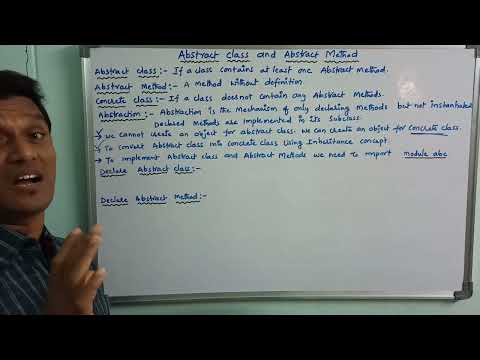 Abstract class and Abstract Method
Abstract class:- If a class contains at least one Abstract method.
Abstract Method:- A method without definition
Concrete class:- If a class doesnot contain any Abstract Methods.
Abstraction:- Abstraction is the Mechanism of only declaring methods but not instantiated
Declared Methods are implemented in its Subclass.
we cannot create an object for abstract class. we can create an object for concrete class.
→ To convert Abstract class into concrete class Using Inheritance concept.
→ To implement Abstract class and Abstract Methods we need To import module abc
Declare Abstract class:-
Declare Abstract Method:-